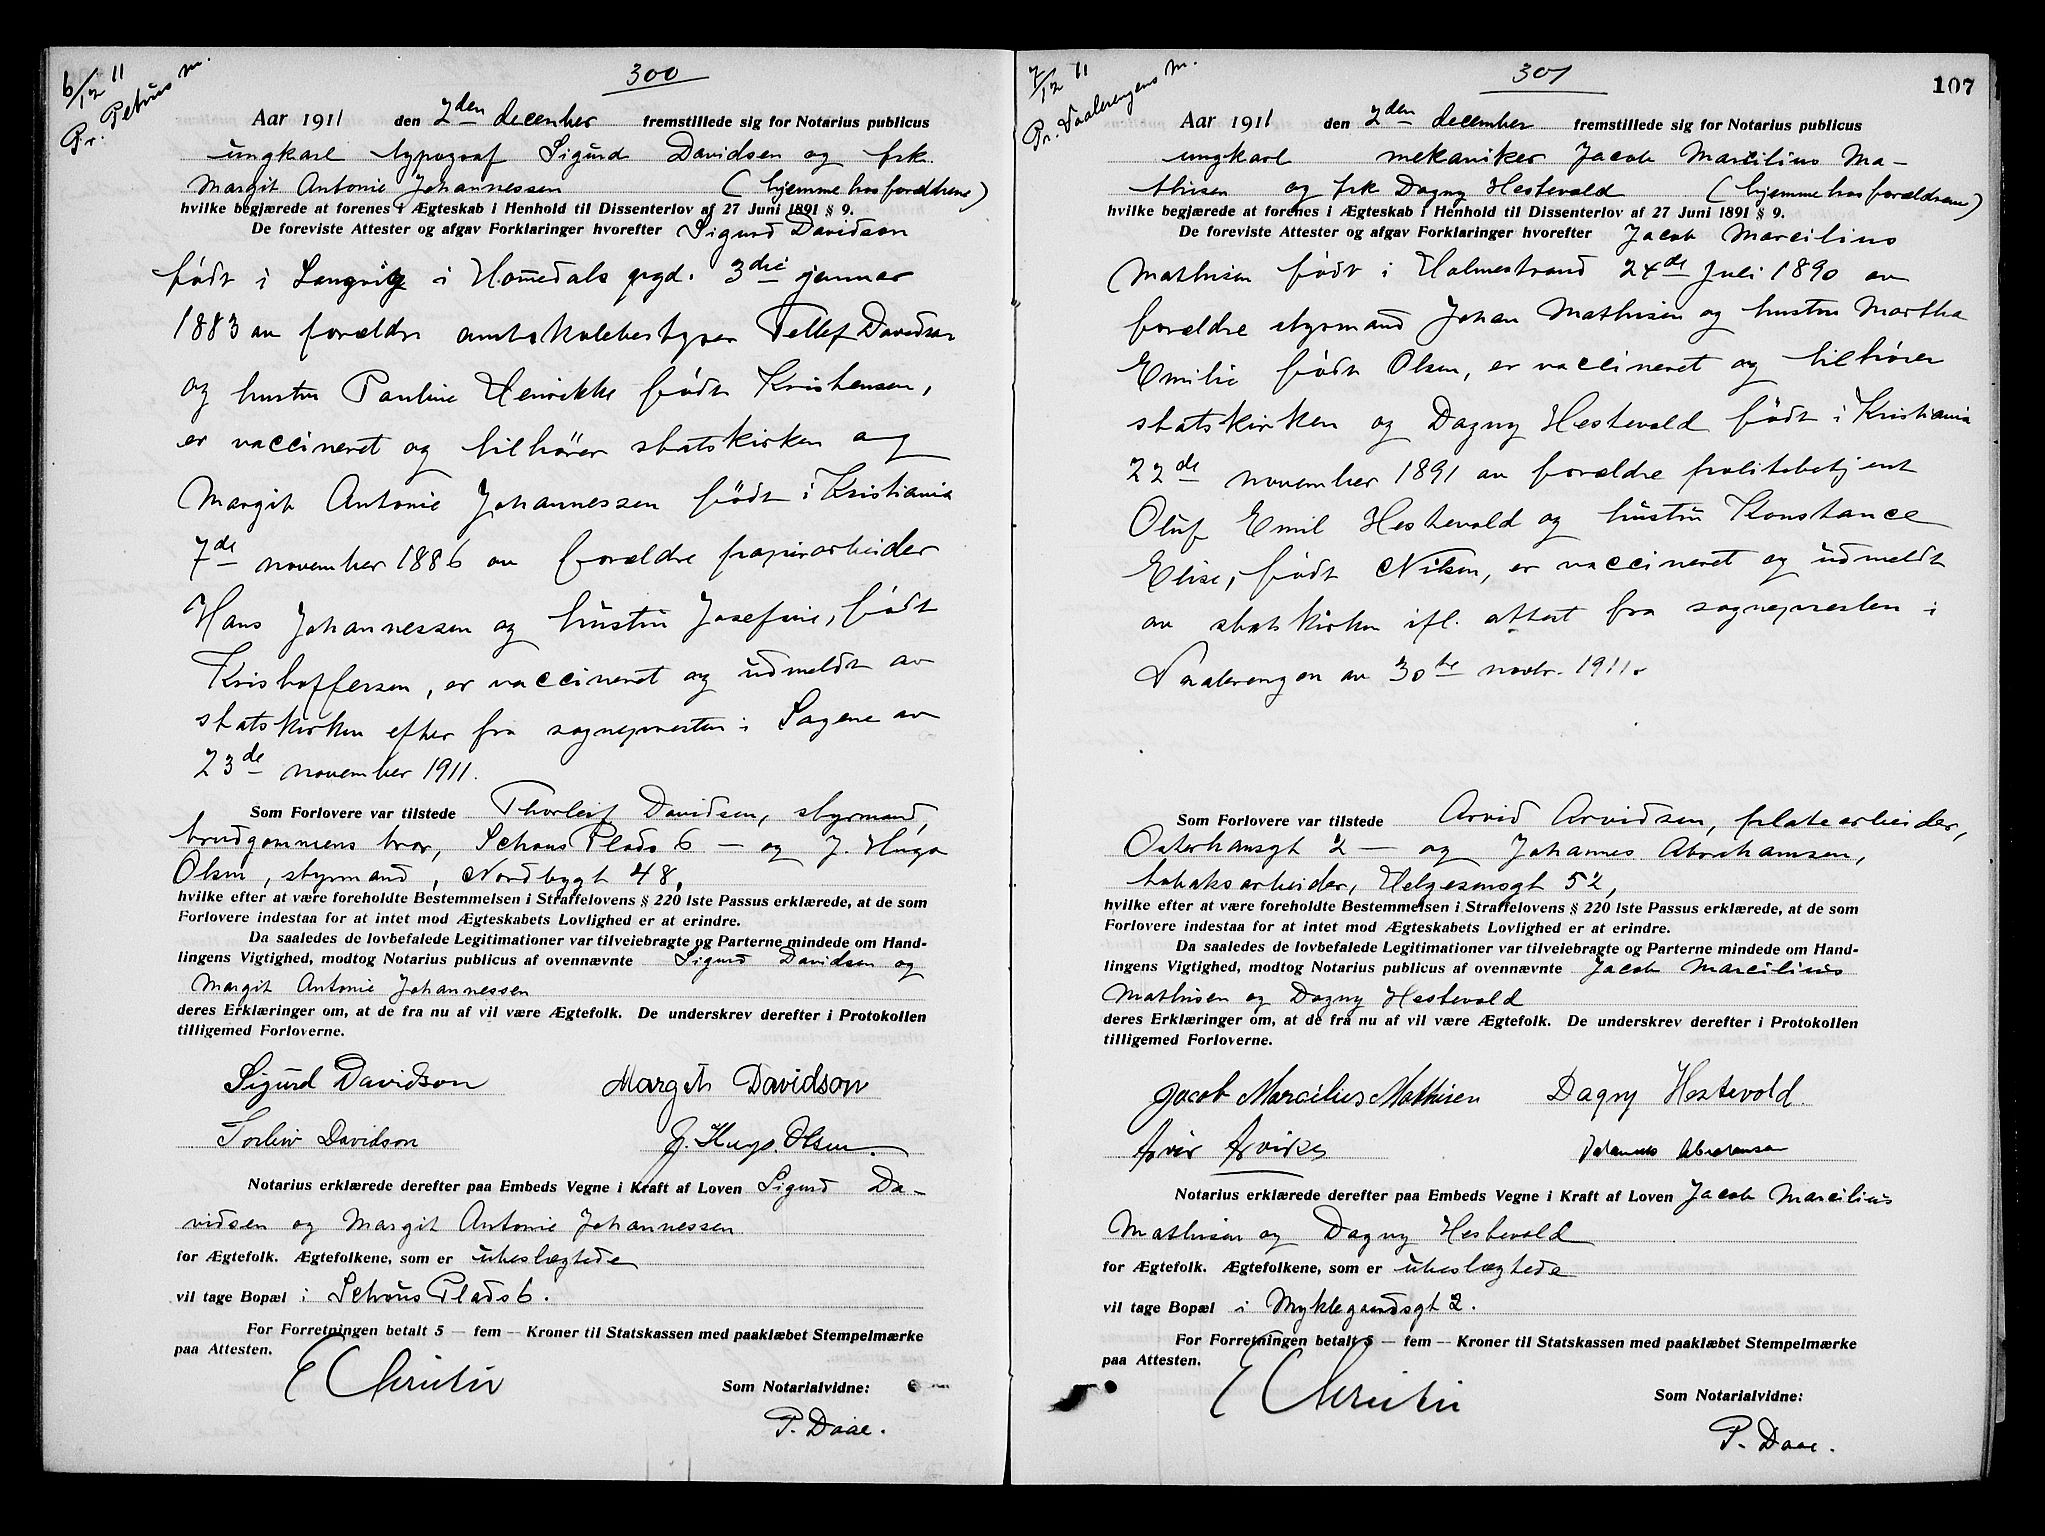 6/12 11
Pr. Petrus m.
300
Aar 1911 den 2den december fremstillede sig for Notarius publicus
ungkarl typograf Sigurd Davidsen og frk.
Margit Antonie Johannessen (hjemme hos forældrene)
hvilke begjærede at forenes i Ægteskab i Henhold til Dissenterlov af 27 Juni 1891 § 9.
De foreviste Attester og afgav Forklaringer hvorefter Sigurd Davidson
født i i Homedals prgd. 3die januar
1883 av forældre amtskolebestyrer Tellef Davidsen
og hustru Pauline Henrikke født Kristensen,
er vaccineret og tilhører statskirken og
Margit Antonie Johannessen født i Kristiania
7de november 1886 av forældre papirarbeider
Hans Johannessen og hustru Josefine, født
Kristoffersen, er vaccineret og udmeldt av
statskirken efter fra sognepresten i Sagene av
23de november 1911.
Som Forlovere var tilstede Thorleif Davidsen, styrmand,
brudgommens bror, Schous Plads 6 – og J. Hugo
Olsen, styrmand, Nordbygt 48,
hvilke efter at være foreholdte Bestemmelsen i Straffelovens § 220 1ste Passus erklærede, at de som
Forlovere indestaa for at intet mod Ægteskabets Lovlighed er at erindre.
Da saaledes de lovbefalede Legitimationer var tilveiebragte og Parterne mindede om Hand-
lingens Vigtighed, modtog Notarius publicus af ovennævnte Sigurd Davidsen og
Margit Antonie Johannessen
deres Erklæringer om, at de fra nu af vil være Ægtefolk. De underskrev derefter i Protokollen
tilligemed Forloverne.
Sigurd Davidson Margit Davidson
Davidson J. Hugo. Olsen.
Notarius erklærede derefter paa Embeds Vegne i Kraft af Loven Sigurd Da-
vidsen og Margit Antonie Johannessen
for Ægtefolk. Ægtefolkene, som er ubeslægtede
vil tage Bopæl i Schous Plads 6.
For Forretningen betalt 5 — fem — Kroner til Statskassen med paaklæbet Stempelmærke
paa Attesten.
E Christie
Som Notarialvidne:
P. Daae.
7/12 11
Pr. Vaalerengens m.
301
107
Aar 1911 den 2den december fremstillede sig for Notarius publicus
ungkarl mekaniker Jacob Marcilius Ma-
thisen og frk Dagny Hestevold (hjemme hos forældrene)
hvilke begjærede at forenes i Ægteskab i Henhold til Dissenterlov af 27 Juni 1891 § 9.
De foreviste Attester og afgav Forklaringer hvorefter Jacob Marcilius
Mathisen født i Holmestrand 24de juli 1890 av
forældre styrmand Johan Mathisen og hustru Martha
Emilie født Olsen, er vaccineret og tilhører
statskirken og Dagny Hestevold født i Kristiania
22de november 1891 av forældre politibetjent
Oluf Emil Hestevold og hustru Konstance
Elise, født Nilsen, er vaccineret og udmeldt
av statskirken ifl. attest fra sognepresten i
Vaalerengen av 30te novbr. 1911.
Som Forlovere var tilstede Arvid Arvidsen, platearbeider,
Osterhausgt 2 – og Johannes Abrahamsen,
tobaksarbeider, Helgesensgt 52,
hvilke efter at være foreholdte Bestemmelsen i Straffelovens § 220 1ste Passus erklærede, at de som
Forlovere indestaa for at intet mod Ægteskabets Lovlighed er at erindre.
Da saaledes de lovbefalede Legitimationer var tilveiebragte og Parterne mindede om Hand-
lingens Vigtighed, modtog Notarius publicus af ovennævnte Jacob Marcilius
Mathisen og Dagny Hestevold
deres Erklæringer om, at de fra nu af vil være Ægtefolk. De underskrev derefter i Protokollen
tilligemed Forloverne.
Jacob Marcelius Mathisen Dagny Hestevold.
Notarius erklærede derefter paa Embeds Vegne i Kraft af Loven Jacob Marcilius
Mathisen og Dagny Hestevold
for Ægtefolk. Ægtefolkene, som er ubeslægtede
vil tage Bopæl i Myklegaardsgt 2.
For Forretningen betalt 5 — fem — Kroner til Statskassen med paaklæbet Stempelmærke
paa Attesten.
E Christie
Som Notarialvidne:
P. Daae.